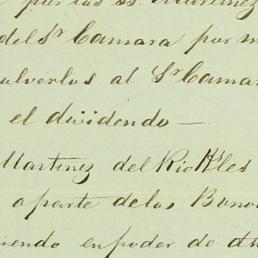 por los SS. Martinez
del Sr Camara por m
olverlos al Sr Cama
el dividendo —
Martinez del Rio Hs les
aparte de los Bono
iendo en poder de dh